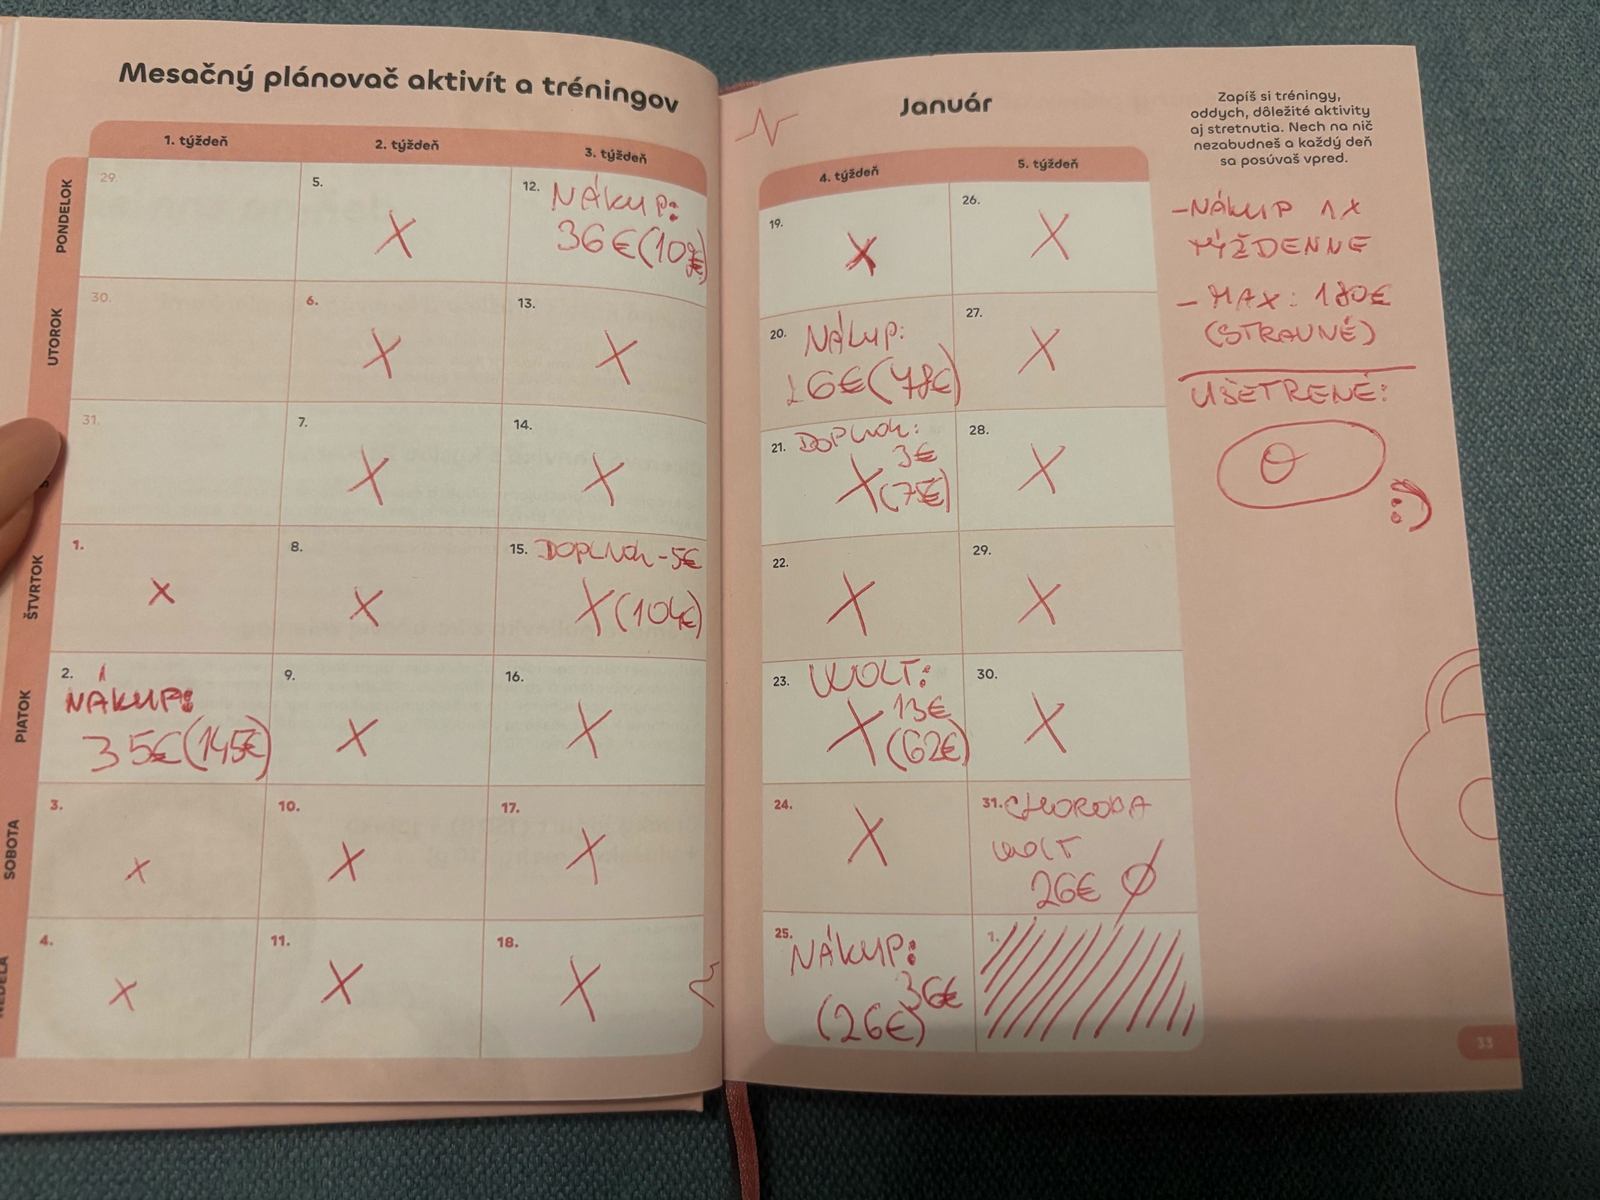 Mesačný plánovač aktivít a tréningov
1. týždeň
2. týždeň
3. týždeň
PONDELOK
29.
5.
X
12. NÁKUP:
36€(109€)
UTOROK
30.
6.
X
13.
X
31.
7.
X
14.
X
ŠTVRTOK
1.
X
8.
X
15. DOPLNOK -5€
X(104€)
PIATOK
2.
NÁKUP:
35€(145€)
9.
X
16.
X
SOBOTA
3.
X
10.
X
17.
X
NEDEĽA
4.
X
11.
X
18.
X
Január
4. týždeň
5. týždeň
19.
X
26.
X
20. NÁKUP:
26€(78€)
27.
X
21. DOPLNOK:
3€
X(75€)
28.
X
22.
X
29.
X
23. WOLT:
X 13€
(62€)
30.
X
24.
X
31. CHOROBA
WOLT
26€ Ø
25. NÁKUP:
36€
(26€)
1.
Zapíš si tréningy,
oddych, dôležité aktivity
aj stretnutia. Nech na nič
nezabudneš a každý deň
sa posúvaš vpred.
-NÁKUP 1X
TÝŽDENNE
- MAX: 180€
(STRAVNÉ)
UŠETRENÉ:
0
:)
33